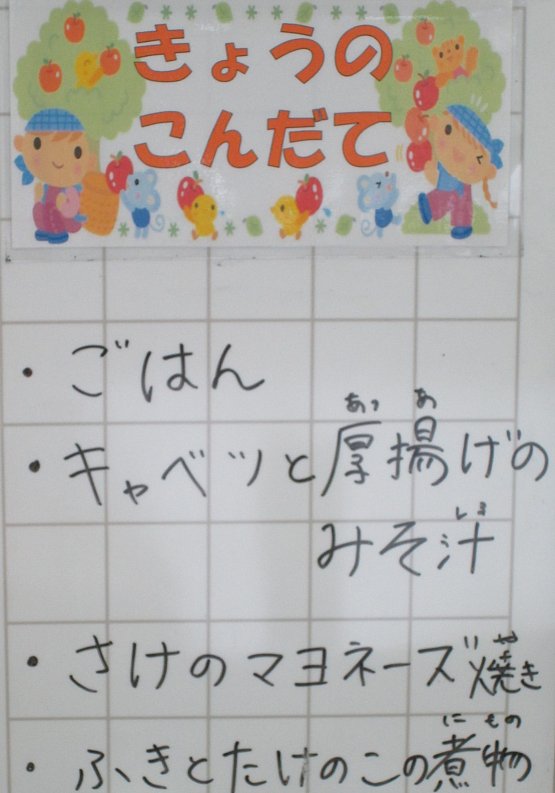 きょうの
こんだて
・ごはん
・キャベツと厚揚げの
みそ汁
・さけのマヨネーズ焼き
・ふきとたけのこの煮物